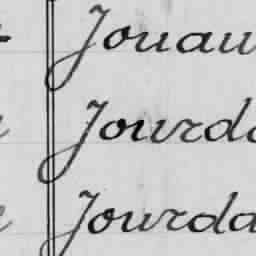 Jouau
Jourda
Jourda